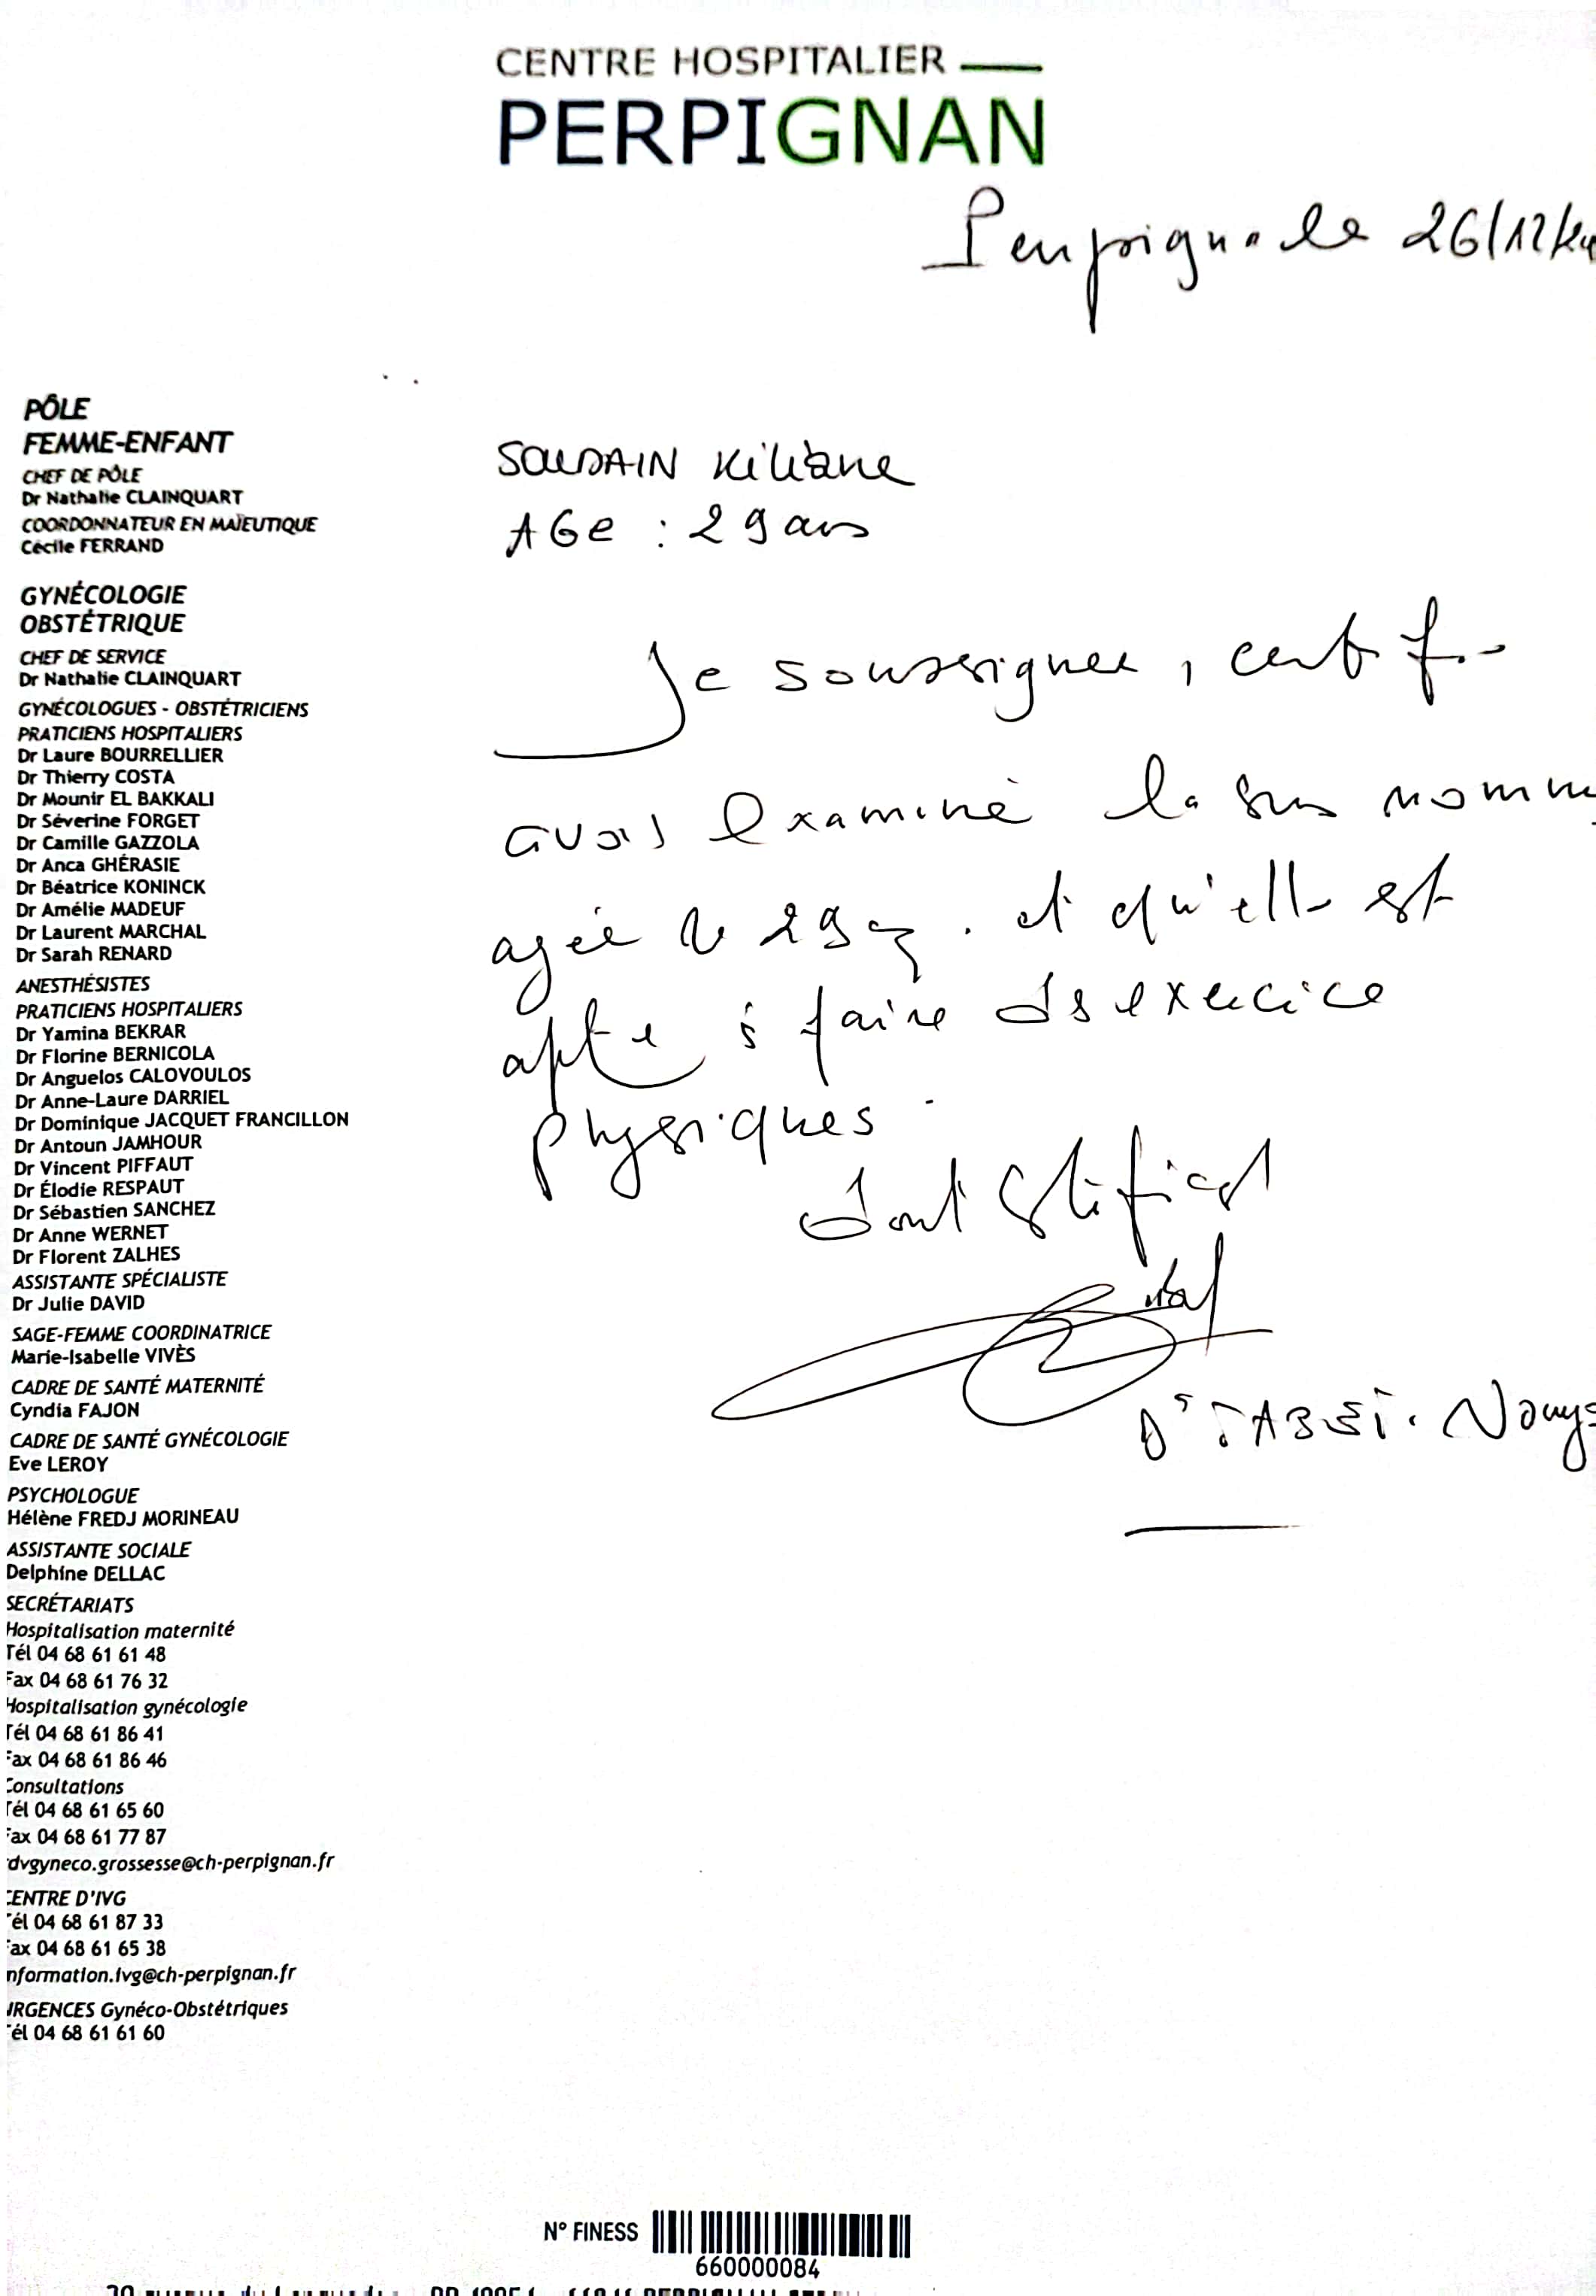 CENTRE HOSPITALIER
PERPIGNAN
Perpigna le 26/12/24
PÔLE
FEMME-ENFANT
CHEF DE PÔLE
Dr Nathalie CLAINQUART
COORDONNATEUR EN MAÏEUTIQUE
Cécile FERRAND
GYNÉCOLOGIE
OBSTÉTRIQUE
CHEF DE SERVICE
Dr Nathalie CLAINQUART
GYNÉCOLOGUES - OBSTÉTRICIENS
PRATICIENS HOSPITALIERS
Dr Laure BOURRELLIER
Dr Thierry COSTA
Dr Mounir EL BAKKALI
Dr Séverine FORGET
Dr Camille GAZZOLA
Dr Anca GHÉRASIE
Dr Béatrice KONINCK
Dr Amélie MADEUF
Dr Laurent MARCHAL
Dr Sarah RENARD
ANESTHÉSISTES
PRATICIENS HOSPITALIERS
Dr Yamina BEKRAR
Dr Florine BERNICOLA
Dr Anguelos CALOVOULOS
Dr Anne-Laure DARRIEL
Dr Dominique JACQUET FRANCILLON
Dr Antoun JAMHOUR
Dr Vincent PIFFAUT
Dr Élodie RESPAUT
Dr Sébastien SANCHEZ
Dr Anne WERNET
Dr Florent ZALHES
ASSISTANTE SPÉCIALISTE
Dr Julie DAVID
SAGE-FEMME COORDINATRICE
Marie-Isabelle VIVÈS
CADRE DE SANTÉ MATERNITÉ
Cyndia FAJON
CADRE DE SANTÉ GYNÉCOLOGIE
Eve LEROY
PSYCHOLOGUE
Hélène FREDJ MORINEAU
ASSISTANTE SOCIALE
Delphine DELLAC
SECRÉTARIATS
Hospitalisation maternité
Tél 04 68 61 61 48
Fax 04 68 61 76 32
Hospitalisation gynécologie
Tél 04 68 61 86 41
Fax 04 68 61 86 46
Consultations
Tél 04 68 61 65 60
Fax 04 68 61 77 87
rdvgyneco.grossesse@ch-perpignan.fr
CENTRE D'IVG
Tél 04 68 61 87 33
Fax 04 68 61 65 38
information.ivg@ch-perpignan.fr
URGENCES Gynéco-Obstétriques
Tél 04 68 61 61 60
SOUDAIN Kiliane
AGe : 29 ans
Je soussignee, certif
avoir examiné la sus nomm
agée de 29 . et qu'elle est
apte à faire ds exercice
physiques
dont Ctificat
Dr
N° FINESS
660000084